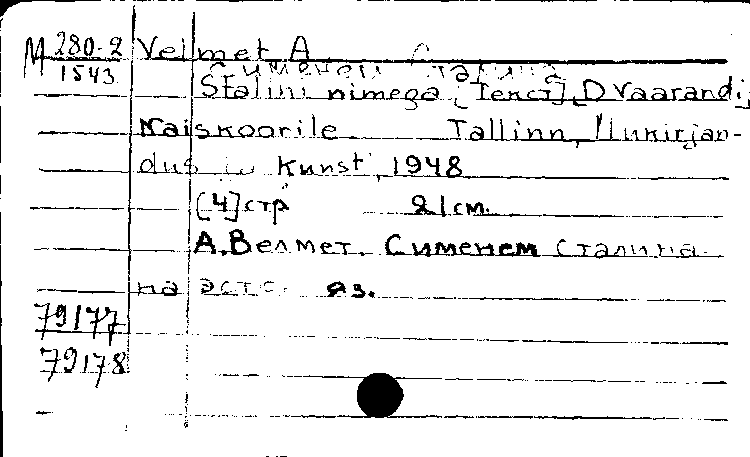 М 280-2 Velmet A
1543 С именем Сталина
Stalini nimega, [Текст], D Vaarandi,
Naiskoorile Tallinn, Ilukirjan-
dus ja Kunst, 1948
[4] стр 21 см.
А. Велмет. С именем Сталина
на эстс. яз.
79177
79178